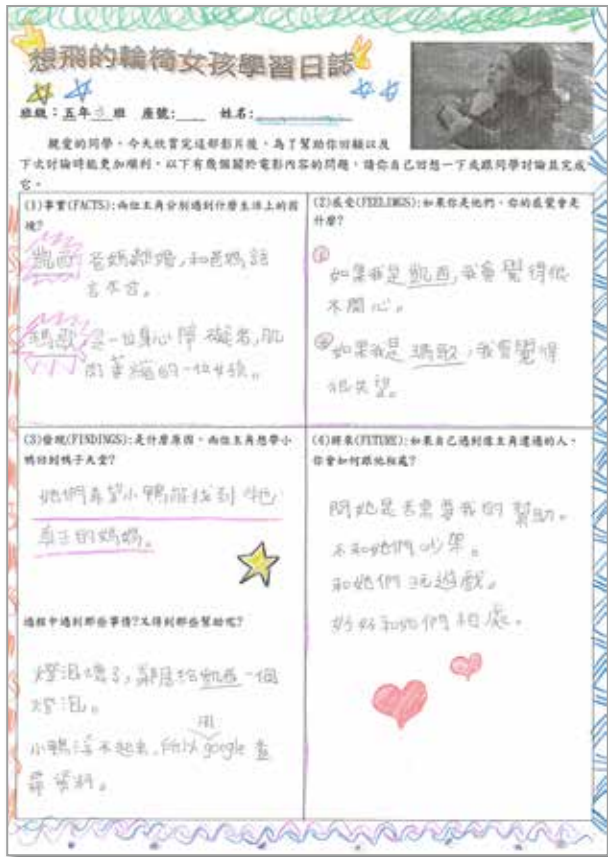 想飛的輪椅女孩學習日誌
班級：五年 班 座號:____ 姓名:
親愛的同學，今天欣賞完這部影片後，為了幫助你回顧以及
下次討論時能更加順利，以下有幾個關於電影內容的問題，請你自己回想一下或跟同學討論並完成
它。
(1)事實(FACTS):兩位主角分別遇到什麼生活上的困
境?
凱西 爸媽離婚,和爸媽語
言不合。
瑪歌 是一位身心障礙者,肌
肉萎縮的一位女孩。
(2)感受(FEELINGS):如果你是他們，你的感覺會是
什麼?
如果我是凱西,我會覺得很
不開心。
如果我是瑪歌,我會覺得
很失望。
(3)發現(FINDINGS):是什麼原因，兩位主角想帶小
鴨回到鴨子天堂?
她們希望小鴨能找到牠
真正的媽媽。
過程中遇到那些事情?又得到那些幫助呢?
燈泡壞了,鄰居給凱西一個
燈泡。
用
小鴨浮不起來,所以google 查
尋資料。
(4)將來(FUTURE):如果自己遇到像主角遭遇的人，
你會如何跟他相處?
問她是否需要我的幫助。
不和她們吵架。
和她們玩遊戲。
好好和她們相處。